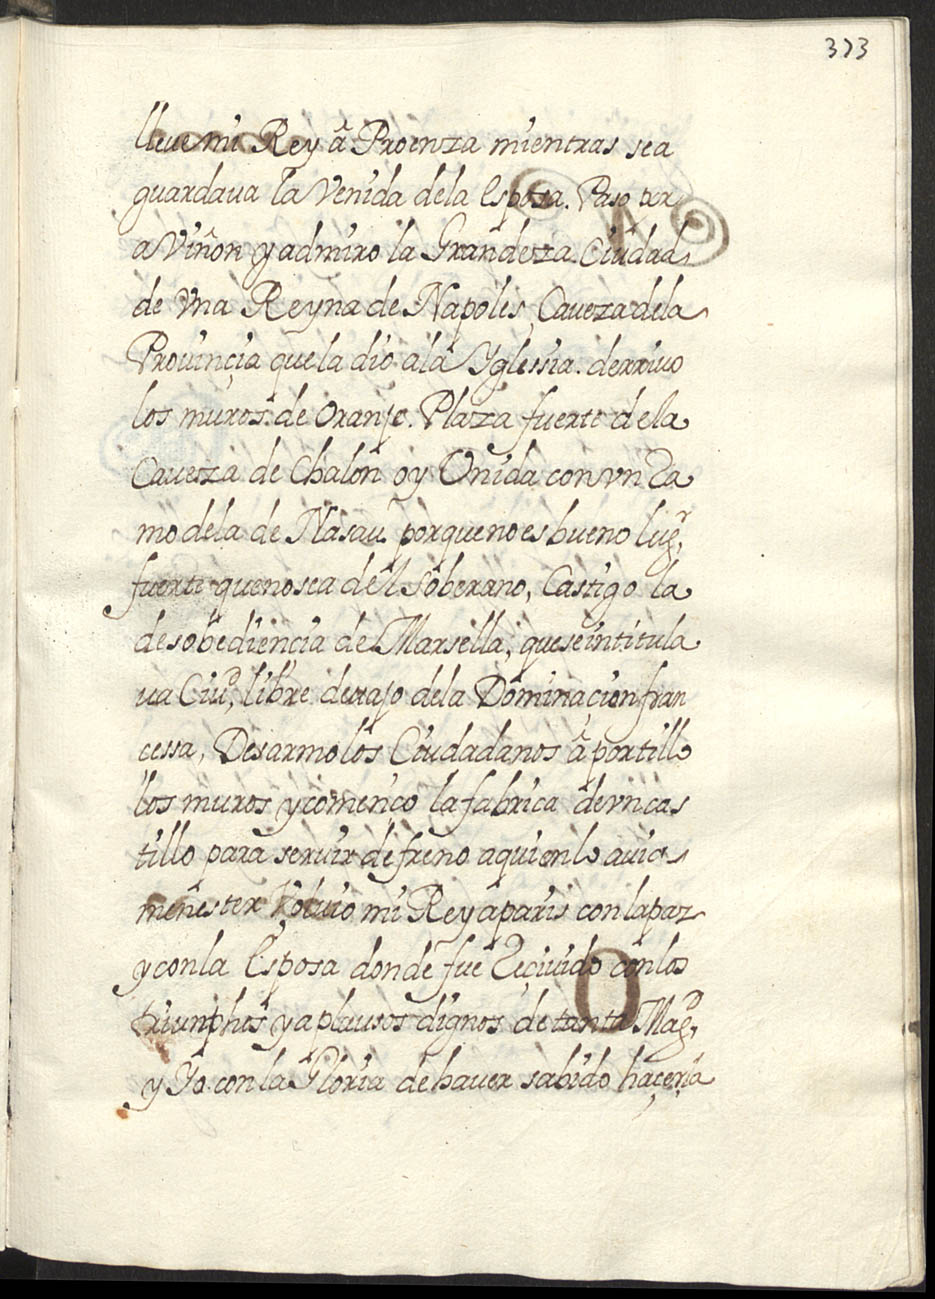 373
lleue mi Rey â Proenza mientras sea
guardaua la Venida dela Esposa. Paso por
a Viñon y admiro la Grandeza Ciudad
de Vna Reyna de Napoles, Caueza dela
Prouinçia que la dio ala Yglessia. derriuo
los muros. de oranje. Plaza fuerte dela
Caueza de Chalon oy Vnida con vn Ra
mo dela de Nasau porque no es bueno lugr
fuerte que no sea del Soberano, Castigo la
desobediencia de Marsella, que se intitula
ua Ciud, libre deuajo dela Dominaçion fran
cessa, Desarmo los Ciudadanos â portillo
los muros y començo la fabrica de vn cas
tillo para seruir de freno a quien lo auia
menester Voluio mi Rey a paris con la paz
y con la Esposa donde fue Reçiuido con los
triumphos y aplausos dignos de tanta Magd,
y Yo con la Gloria de hauer sabido haçerla